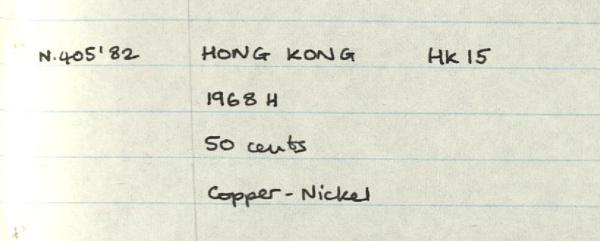 N.405'82 HONG KONG HK 15
1968 H
50 cents
Copper-Nickel